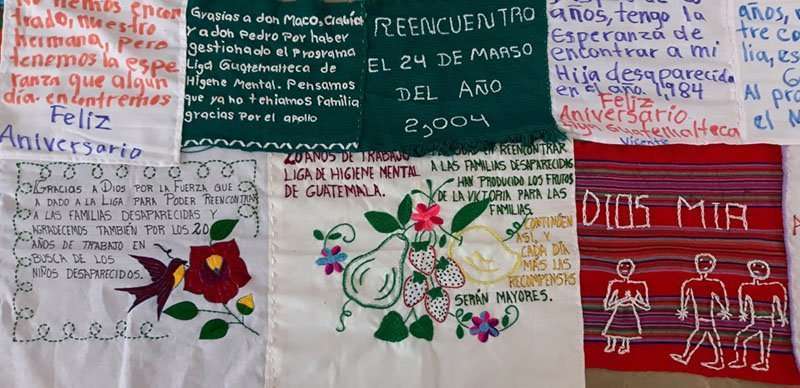 No hemos encon
trado, nuestro
hermana, pero
tenemos la espe
ranza que algun
dia. encontremos
Feliz
Aniversario
Grasias a don Maco,
y a don Pedro Por haber
gestionado el Programa
Liga Guatemalteca de
Higene Mental. Pensamos
que ya no teniamos familia
gracias Por el apollo
REENCUENTRO
EL 24 DE MARSO
DEL AÑO
2,004
años, tengo la
Esperanza de
encontrar a mi
Hija desaparecida
en el año 1,984
Feliz
Aniversario
Liga Guatemalteca
Vicente
años,
tre co
lia, es
G
Al pro
el
GRACIAS A DIOS POR LA FUERZA QUE
A DADO A LA LIGA PARA PODER REENCONTRAR
A LAS FAMILIAS DESAPARECIDAS Y
AGRADECEMOS TAMBIÉN POR LOS 20
AÑOS DE TRABAJO EN
BUSCA DE LOS
NIÑOS DESAPARECIDOS.
20 AÑOS DE TRABAJO
LIGA DE HIGIENE MENTAL
DE GUATEMALA.
REENCONTRAR
A LAS FAMILIAS DESAPARECIDAS
HAN PRODUCIDO LOS FRUTOS
DE LA VICTORIA PARA LAS
FAMILIAS.
CONTINUEN
ASI, Y
CADA DÍA
MÁS LAS
RECOMPENSAS
SERÁN MAYORES.
DIOS MIA